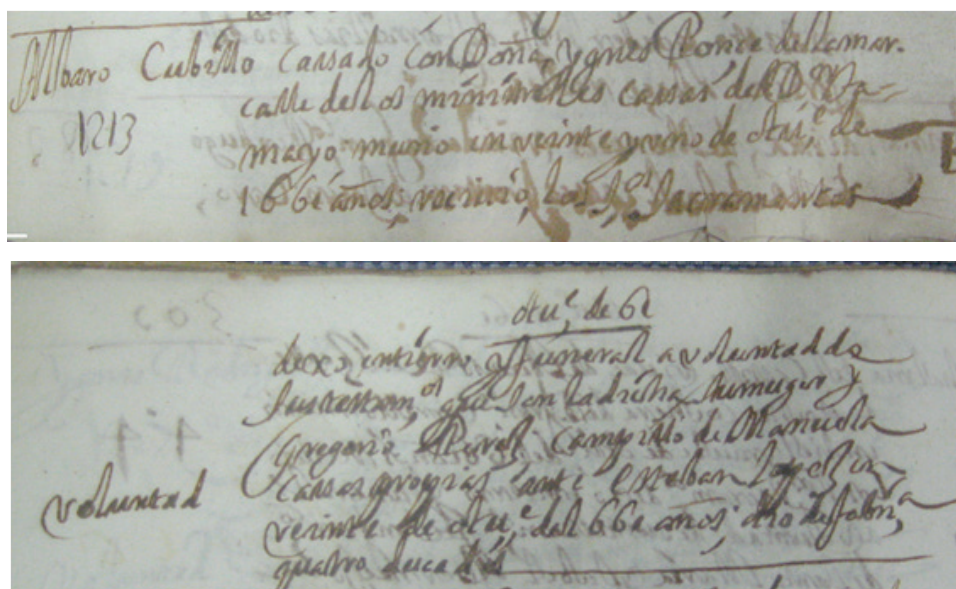 Albaro Cubillo Cassado con Doña ygnes Ponce de Lamar.
calle de los ministriles cassas del D.
1213
mayo murio en veinte y uno de otu.e de
1661 años, recivio los S.tos Sacramentos
otu.e de 61
dexo entierro y funeral a voluntad de
sus testam.os que son la dicha su muger y
Gregorio Perez, campillo de Manuela
cassas propias ante Esteban Lopez en
voluntad
veinte de otu.e de 1661 años; dio de fabri.ca
quatro ducados